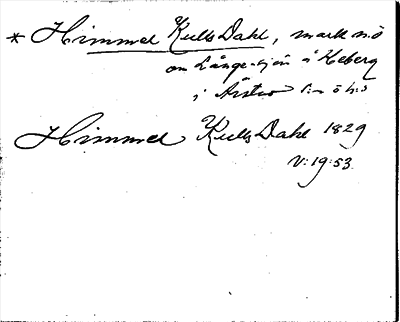 * Himmel Kulls Dahl, mark n.ö
om Långe-tjen å Heberg
i Årstad s:n ö h:s
Himmel Kulls Dahl 1829
V:19:53.